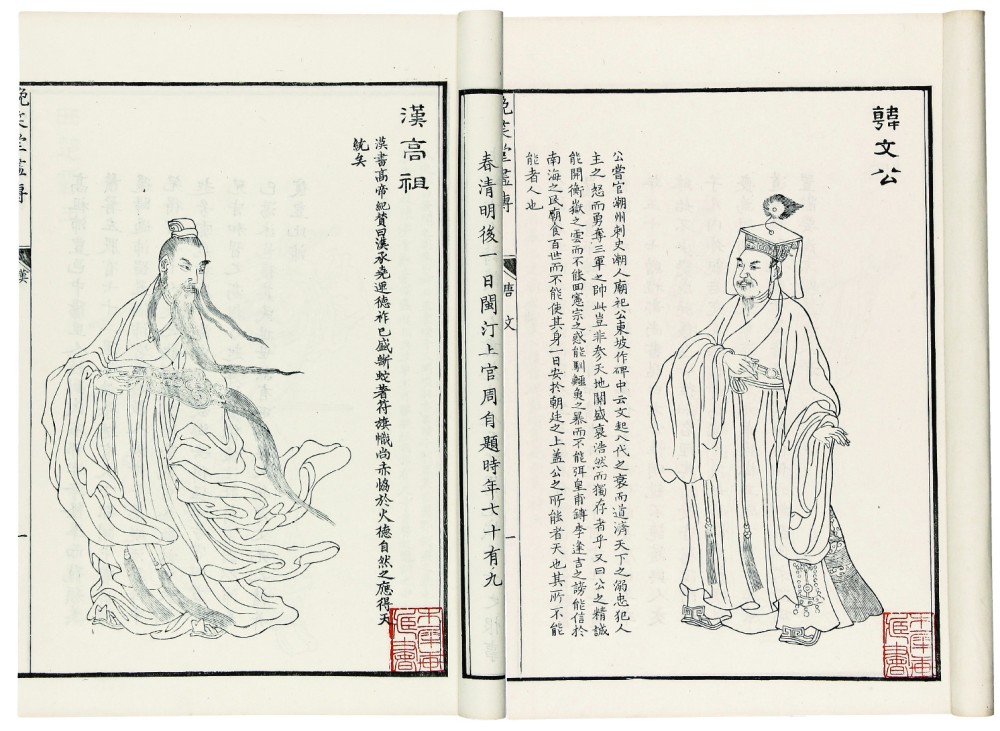 韓文公
公嘗官潮州刺史潮人廟祀公東坡作碑中云文起八代之衰而道濟天下之溺忠犯人
主之怒而勇奪三軍之帥此豈非參天地關盛衰浩然而獨存者乎又曰公之精誠
能開衡嶽之雲而不能回憲宗之惑能馴鱷魚之暴而不能弭皇甫鎛李逢吉之謗能信於
南海之民廟食百世而不能使其身一日安於朝廷之上蓋公之所能者天也其所不能
能者人也
晚笑堂畫傳
唐 文
一
春清明後一日閩汀上官周自題時年七十有九
漢高祖
漢書高帝紀贊曰漢承堯運德祚已盛斷蛇著符旗幟尚赤協於火德自然之應得天
統矣
晚笑堂畫傳
漢
一